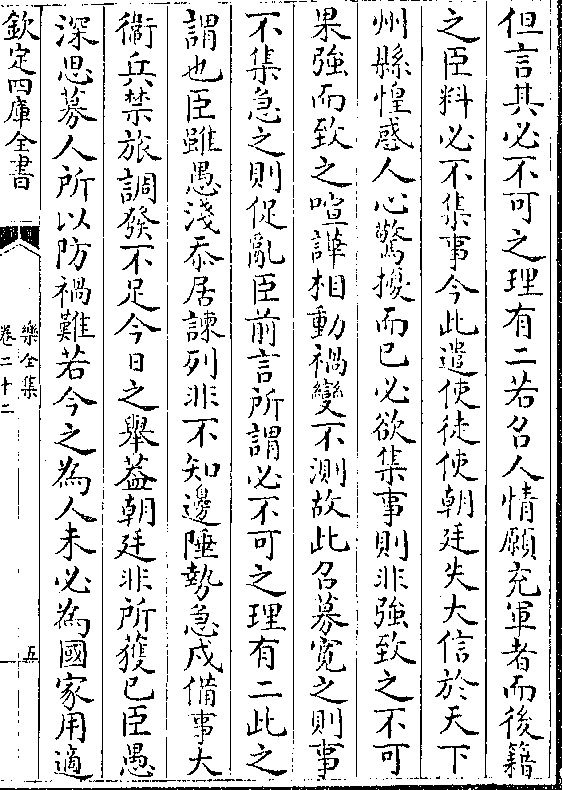 但言其必不可之理有二若召人情願充軍者而後籍
之臣料必不集事今此遣使徒使朝廷失大信於天下
州縣惶惑人心驚擾而已必欲集事則非強致之不可
果強而致之喧譁相動禍變不測故此召募寛之則事
不集急之則促亂臣前言所謂必不可之理有二此之
謂也臣雖愚淺忝居諫列非不知邊陲勢急戍備事大
衞兵禁旅調發不足今日之舉葢朝廷非所獲已臣愚
深思募人所以防禍難若今之為人未必為國家用適
欽定四庫全書
樂全集
卷二十二
五